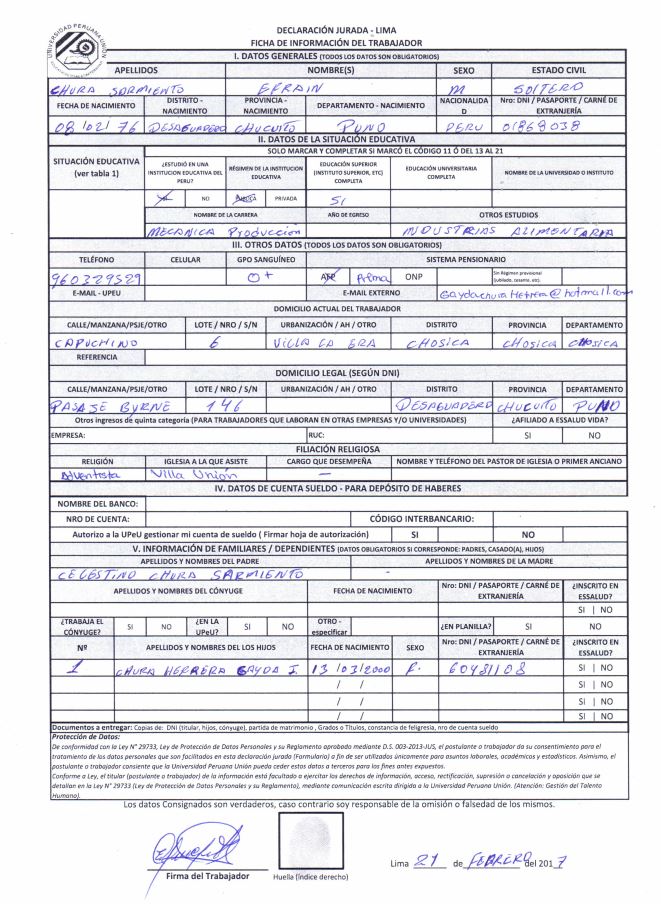 UNIVERSIDAD PERUANA UNIÓN
DECLARACIÓN JURADA - LIMA
FICHA DE INFORMACIÓN DEL TRABAJADOR
I. DATOS GENERALES (TODOS LOS DATOS SON OBLIGATORIOS)
APELLIDOS NOMBRE(S) SEXO ESTADO CIVIL
CHURA SARMIENTO EFRAIN M SOLTERO
FECHA DE NACIMIENTO DISTRITO - NACIMIENTO PROVINCIA - NACIMIENTO DEPARTAMENTO - NACIMIENTO NACIONALIDAD Nro: DNI / PASAPORTE / CARNÉ DE EXTRANJERÍA
08/02/76 DESAGUADERO CHUCUITO PUNO PERU 01868038
II. DATOS DE LA SITUACIÓN EDUCATIVA
SITUACIÓN EDUCATIVA (ver tabla 1)
SOLO MARCAR Y COMPLETAR SI MARCÓ EL CÓDIGO 11 Ó DEL 13 AL 21
¿ESTUDIÓ EN UNA INSTITUCION EDUCATIVA DEL PERU? RÉGIMEN DE LA INSTITUCION EDUCATIVA EDUCACIÓN SUPERIOR (INSTITUTO SUPERIOR, ETC) COMPLETA EDUCACIÓN UNIVERSITARIA COMPLETA NOMBRE DE LA UNIVERSIDAD O INSTITUTO
NO PÚBLICA PRIVADA SI
NOMBRE DE LA CARRERA AÑO DE EGRESO OTROS ESTUDIOS
MECANICA Producción INDUSTRIAS ALIMENTARIA
III. OTROS DATOS (TODOS LOS DATOS SON OBLIGATORIOS)
TELÉFONO CELULAR GPO SANGUÍNEO SISTEMA PENSIONARIO
960329529 O+ AFP Prima ONP Sin Régimen previsional (jubilado, cesante, etc).
E-MAIL - UPEU E-MAIL EXTERNO Gaydachuraherrera@hotmail.com
DOMICILIO ACTUAL DEL TRABAJADOR
CALLE/MANZANA/PSJE/OTRO LOTE / NRO / S/N URBANIZACIÓN / AH / OTRO DISTRITO PROVINCIA DEPARTAMENTO
CAPUCHINO 6 VILLA LA ERA CHOSICA CHOSICA CHOSICA
REFERENCIA
DOMICILIO LEGAL (SEGÚN DNI)
CALLE/MANZANA/PSJE/OTRO LOTE / NRO / S/N URBANIZACIÓN / AH / OTRO DISTRITO PROVINCIA DEPARTAMENTO
PASAJE BYRNE 146 DESAGUADERO CHUCUITO PUNO
Otros ingresos de quinta categoría (PARA TRABAJADORES QUE LABORAN EN OTRAS EMPRESAS Y/O UNIVERSIDADES) ¿AFILIADO A ESSALUD VIDA?
EMPRESA: RUC: SI NO
FILIACIÓN RELIGIOSA
RELIGIÓN IGLESIA A LA QUE ASISTE CARGO QUE DESEMPEÑA NOMBRE Y TELÉFONO DEL PASTOR DE IGLESIA O PRIMER ANCIANO
Adventista Villa Unión —
IV. DATOS DE CUENTA SUELDO - PARA DEPÓSITO DE HABERES
NOMBRE DEL BANCO:
NRO DE CUENTA: CÓDIGO INTERBANCARIO:
Autorizo a la UPeU gestionar mi cuenta de sueldo ( Firmar hoja de autorización) SI NO
V. INFORMACIÓN DE FAMILIARES / DEPENDIENTES (DATOS OBLIGATORIOS SI CORRESPONDE: PADRES, CASADO(A), HIJOS)
APELLIDOS Y NOMBRES DEL PADRE APELLIDOS Y NOMBRES DE LA MADRE
CELESTINO CHURA SARMIENTO -
APELLIDOS Y NOMBRES DEL CÓNYUGE FECHA DE NACIMIENTO Nro: DNI / PASAPORTE / CARNÉ DE EXTRANJERÍA ¿INSCRITO EN ESSALUD?
SI | NO
¿TRABAJA EL CÓNYUGE? SI NO ¿EN LA UPeU? SI NO OTRO - especificar ¿EN PLANILLA? SI NO
Nº APELLIDOS Y NOMBRES DEL LOS HIJOS FECHA DE NACIMIENTO SEXO Nro: DNI / PASAPORTE / CARNÉ DE EXTRANJERÍA ¿INSCRITO EN ESSALUD?
1 CHURA HERRERA GAYDA J. 13/03/2000 F. 60481108 SI | NO
/ / SI | NO
/ / SI | NO
/ / SI | NO
Documentos a entregar: Copias de: DNI (titular, hijos, cónyuge), partida de matrimonio , Grados o Títulos, constancia de feligresia, nro de cuenta sueldo
Protección de Datos:
De conformidad con la Ley N° 29733, Ley de Protección de Datos Personales y su Reglamento aprobado mediante D.S. 003-2013-JUS, el postulante o trabajador da su consentimiento para el
tratamiento de los datos personales que son facilitados en esta declaración jurada (Formulario) a fin de ser utilizados únicamente para asuntos laborales, académicos y estadísticos. Asimismo, el
postulante o trabajador consiente que la Universidad Peruana Unión pueda ceder estos datos a terceros para los fines antes expuestos.
Conforme a Ley, el titular (postulante o trabajador) de la información está facultado a ejercitar los derechos de información, acceso, rectificación, supresión o cancelación y oposición que se
detallan en la Ley N° 29733 (Ley de Protección de Datos Personales y su Reglamento), mediante comunicación escrita dirigida a la Universidad Peruana Unión. (Atención: Gestión del Talento
Humano).
Los datos Consignados son verdaderos, caso contrario soy responsable de la omisión o falsedad de los mismos.
Firma del Trabajador
Huella (índice derecho)
Lima 21 de FEBRERO del 2017